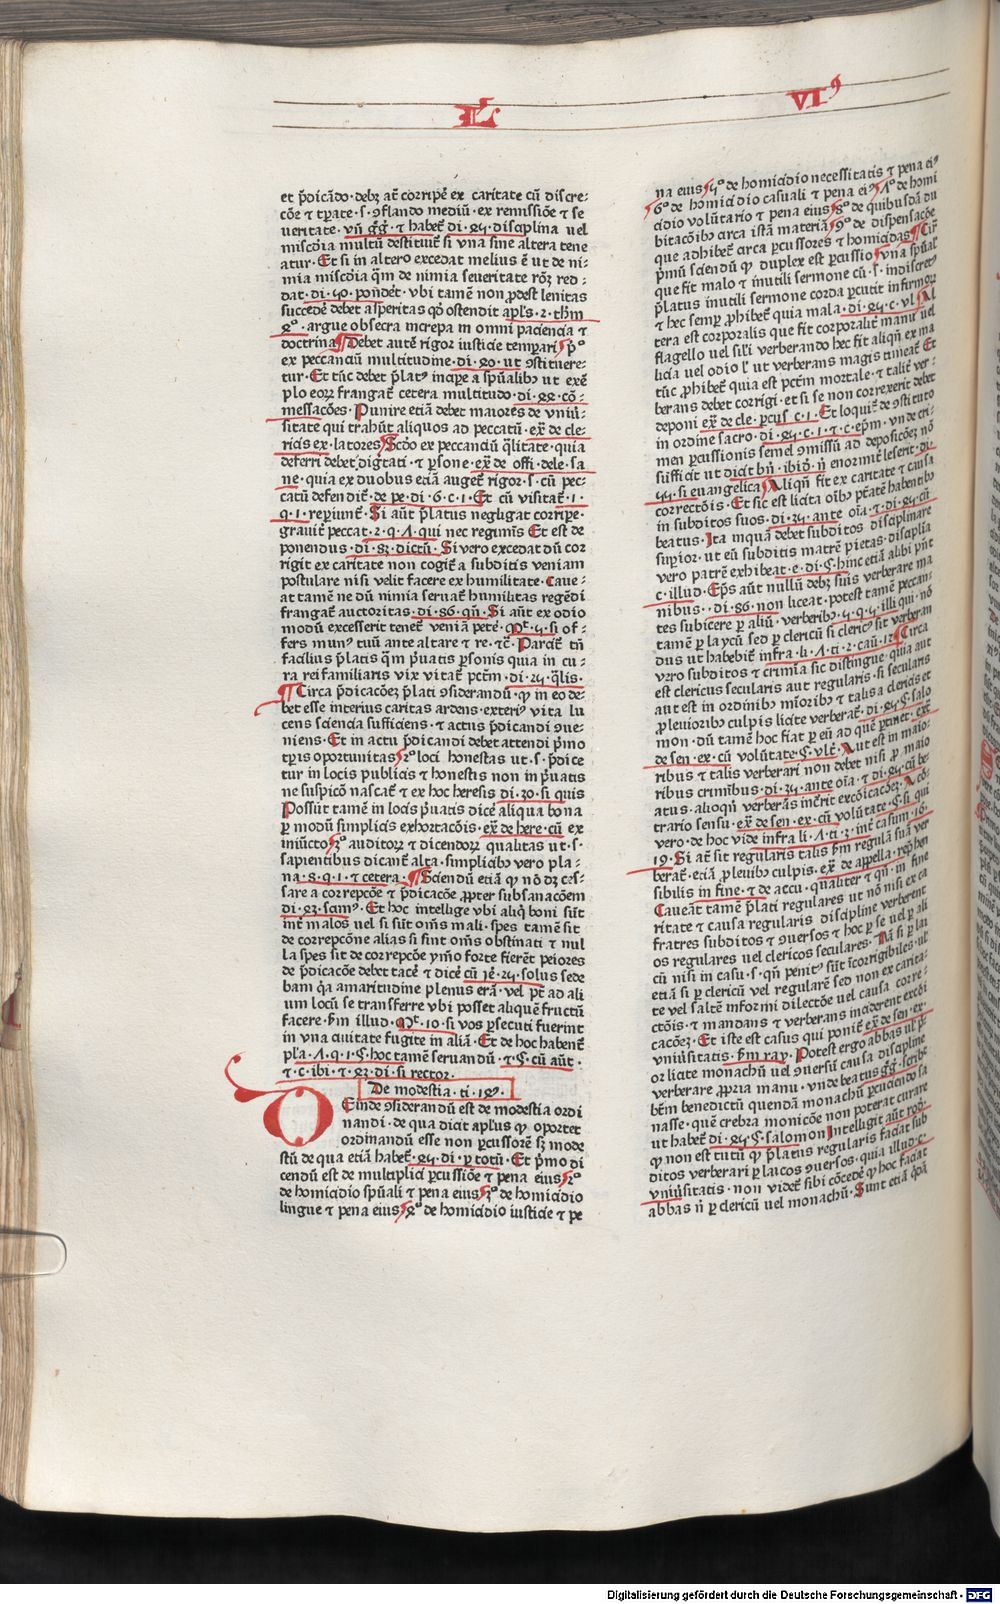 L
VI⁹
et p̄dicādo · debꝫ at̄ corripe̅ ex caritate cū discre-
cōe ⁊ tꝑate · s · ꝯflando mediū · ex remissiōe ⁊ se
ueritate · vn̄ gḡ · ⁊ habet᷑ di · 24 · disciplina uel
miscōia multū destituit᷑ si vna sine altera tene
atur · Et si in altero excedat melius ē ut de ni-
mia miscōia qm̄ de nimia seueritate rōꝫ red-
dat · di · 50 · pōndet᷑ · vbi tamē non ꝓdest lenitas
succedē debet asperitas qō ostendit apl's · 2 · thīm
4° · argue obsecra increpa in omni paciencia ⁊
doctrina ¶ Debet autē rigor iusticie temperari ¶ p°
ex peccanciū multitudine · di · 40 · ut ꝯstituere-
tur · Et tūc debet p̄lat⁹ inciꝑe a spūalibꝫ ut exē
plo eoꝝ frangat᷑ cetera multitudo · di · 44 · cō-
messacōes · Punire etiā debet maiores de vniū̄-
sitate qui trahūt aliquos ad peccatū · ex̄ de cle-
ricis ex · latores ¶ Scd̄o ex peccanciū q̄litate · quia
deferri debet digtati · ⁊ ꝑsone · ex̄ de offi · dele · sa
ne · quia ex duobus etiā auget᷑ rigor · s · cū pec-
catū defendit᷑ · de pe · di · 6 · c · 1 · Et cū visitat᷑ · 1 ·
q · 1 · reꝑiunt᷑ · Si aūt p̄latus negligat corriꝑe ·
grauit᷑ peccat · 2 · q · 7 · qui nec regimīs Et est de
ponendus · di · 83 · dictū · Si vero excedat dū cor
rigit ex caritate non cogit᷑ a subditis veniam
postulare nisi velit facere ex humilitate · Caue-
at tamē ne dū nimia seruat᷑ humilitas regēdi
frangat᷑ auctoritas · di · 86 · qn̄ · Si aūt ex odio
modū excesserit tenet᷑ veniā pete᷑ · Mt̄ · 5 · si of-
fers mun⁹ tuū ante altare ⁊ re · ⁊c̄ · Parcit᷑ tn̄
facilius p̄latis qm̄ p̄uatis ꝑsonis quia in cu-
ra rei familiaris vix vitat᷑ pctm̄ · di · 25 · q̄lis ·
¶ Circa p̄dicacōeꝫ p̄lati ꝯsiderandū · ꝙ in eo de-
bet esse interius caritas ardens · exteri⁹ vita lu
cens sciencia sufficiens · ⁊ actus p̄dicandi ꝯue-
niens · Et in actu p̄dicandi debet attendi p̄mo
tꝑis oportunitas ¶ 2° loci honestas ut · s · p̄dice
tur in locis publicis ⁊ honestis non in p̄uatis
ne suspicō nascat᷑ ⁊ ex hoc heresis di · 30 · si quis
Possūt tamē in locis p̄uatis dice᷑ aliqua bona
ꝑ modū simplicis exhortacōis · ex̄ de here · cū ex
iniūcto ¶ 3° auditoꝝ ⁊ dicendoꝝ qualitas ut · s ·
sapientibus dicant᷑ alta · simplicibꝫ vero pla-
na · 8 · q · 1 · ⁊ cetera · ¶ Sciendū etiā ꝙ nō dꝫ ces-
sare a correpcōe ⁊ p̄dicacōe ꝓpter subsanacōem
di · 43 · sam⁹ · Et hoc intellige vbi aliqi boni sūt
int᷑ malos uel si sūt om̄s mali · spes tamē sit
de correpcōne alias si sint om̄s obstinati ⁊ nul
la spes sit de correpcōe ym̄o forte fierēt peiores
de p̄dicacōe debet tace᷑ ⁊ dice᷑ cū ie᷑ · 25 · solus sede
bam q̄a amaritudine plenus erā · vel pt̄ ad ali
um locū se transferre vbi posset aliquē fructū
facere · s̄m illud · Mt̄ · 10 · si vos ꝑsecuti fuerint
in vna ciuitate fugite in aliā · Et de hoc habent᷑
pl'a · 7 · q · 1 · § · hoc tamē seruandū · ⁊ § · cū aūt ·
⁊ c · ibi · ⁊ 43 · di · si rector ·
De modestia · ti · 14 ·
DEinde ꝯsiderandū est de modestia ordi
nandi · de qua dicit apl'us ꝙ oportet
ordinandū esse non ꝑcussorē sꝫ mode
stū de qua etiā habet᷑ · 45 · di · ꝑ totū · Et p̄mo di
cendū est de multiplici ꝑcussiōe ⁊ pena eius ¶ 2°
de homicidio spūali ⁊ pena eius ¶ 3° de homicidio
lingue ⁊ pena eius ¶ 4° de homicidio iusticie ⁊ pe
na eius ¶ 5° de homicidio necessitatis ⁊ pena ei⁹
¶ 6° de homicidio casuali ⁊ pena ei⁹ ¶ 7° de homi
cidio volūtario ⁊ pena eius ¶ 8° de quibusdā du
bitacōibꝫ circa istā materiā ¶ 9° de dispensacōe
que adhibet᷑ circa ꝑcussores ⁊ homicidas ¶ Cir̄
p̄mū sciendū ꝙ duplex est ꝑcussio ¶ vna spūal'
que fit malo ⁊ inutili sermone cū · s · indiscret⁹
p̄latus inutili sermone corda ꝑcutit infirmoꝝ
⁊ hec semꝑ ꝓhibet᷑ quia mala · di · 45 · c · vl' ¶ Al
tera est corporalis que fit corporalit᷑ manu vel
flagello uel sil'i verberando hec fit aliqn̄ ex ma
licia uel odio l' ut verberans magis timeat᷑ Et
tūc ꝓhibet᷑ quia est pctm̄ mortale · ⁊ talit᷑ ver-
berans debet corrigi · et si se non correxerit debet
deponi ex̄ de cle · ꝑcus̄ c · 1 · Et loquit᷑ de ꝯstituto
in ordine sacro · di · 45 · c · 1 · ⁊ · c · ep̄m · vnde cri-
men ꝑcussionis semel ꝯmissū ad deposicōeꝫ nō
sufficit ut dicit bn̄ · ibid᷑ · n̄ enormit᷑ leserit · di ·
55 · si euangelica ¶ Aliqn̄ fit ex caritate ⁊ causa
correctōis · Et sic est licita oībꝫ ptātē habentibꝫ
in subditos suos · di · 35 · ante oīa · ⁊ · di · 45 · cū
beatus · Ita inquā debet subditos disciplinare
suꝑior · ut eū subditis matrē pietas · disciplīa
vero patrē exhibeat · e · di · § · hinc etiā alibi p̄nt
c · illud · Ep̄s aūt nullū debꝫ suis verberare ma
nibus · · di · 86 · non liceat · potest tamē peccan-
tes subicere ꝑ aliū · verberibꝫ · 5 · q · 5 · illi qui · nō
tamē ꝑ laycū sed ꝑ clericū si cleric⁹ sit verberan
dus ut habebit᷑ infra · li · 7 · ti · 2 · caū · 12 · ¶ Circa
vero subditos ⁊ crimīa sic distingue · quia aut
est clericus secularis aut regularis · si secularis
aut est in ordinibꝫ mīoribꝫ ⁊ talis a clericis et
ꝓ leuioribꝫ culpis licite verberat᷑ · di · 45 § · salo
mon · dū tamē hoc fiat ꝑ eū ad quē ꝑtinet · ex̄
de sen · ex · cū volūtate · § · vlt᷑ · Aut est in maio-
ribus ⁊ talis verberari non debet nisi ꝓ maio
ribus crimībus · di · 35 · ante oīa · ⁊ · di · 45 · cū be-
atus · alioqn̄ verberās incīrit excōicacōeꝫ · A cō-
trario sensu · ex̄ de sen · ex · cū volūtate · § · si qui
vero · de hoc vide infra li · 7 · ti · 3 · int᷑ casum · 16 ·
19 · Si at̄ sit regularis talis s̄m regulā suā ver
berat᷑ · etiā ꝓ leuibꝫ culpis · ex̄ de appella · repꝫhen
sibilis in fine · ⁊ de accu · qualiter ⁊ qn̄ · in fine
Caueāt tamē p̄lati regulares ut nō nisi ex ca
ritate ⁊ causa regularis discipline verberent
fratres subditos ⁊ ꝯuersos ⁊ hoc ꝑ se uel ꝑ ali
os regulares uel clericos seculares · Nā si ꝑ lay
cū nisi in casu · s · qn̄ penit⁹ sūt īcorrigibiles · ul'
etiā si ꝑ clericū vel regularē sed non ex carita-
te vel saltē informi dilectōe uel causa corre-
ctōis · ⁊ mandans ⁊ verberans inciderent excōi
cacōeꝫ · Et iste est casus qui ponit᷑ ex̄ de sen · ex ·
vniūsitatis · s̄m ray · Potest ergo abbas ul' p̄i-
or licite monachū uel ꝯuersū causa discipline
verberare ꝓpria manu · vnde beatus gḡ · scribe
bēm benedictū quendā monachū ꝑciendo sa
nasse · quē crebra monicōe non poterat curare
ut habet᷑ di · 45 § · salomon Intelligit aūt rod̄ ·
ꝙ non est tutū ꝙ p̄latus regularis faciat sub
ditos verberari ꝑ laicos ꝯuersos · quia illud · c ·
vniūsitatis · non videt᷑ sibi cōcede᷑ ꝙ hoc faciat
abbas n̄ ꝑ clericū uel monachū · Sunt etiā q̄dā
Digitalisierung gefördert durch die Deutsche Forschungsgemeinschaft - DFG